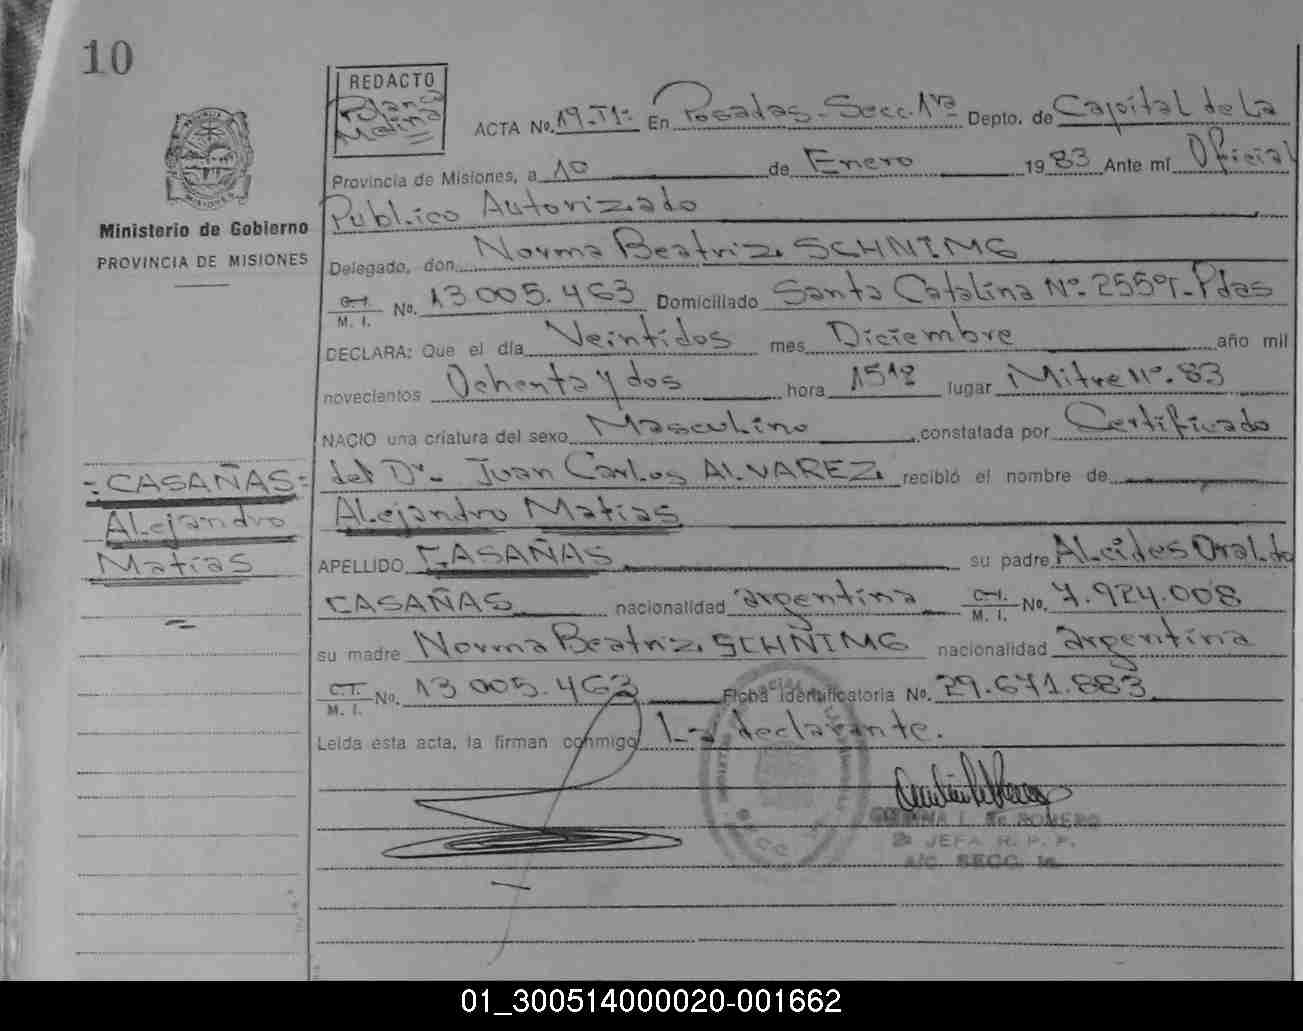 10
REDACTO
Molina
ACTA No. 19-T1: En Posadas-Secc. 1ra Depto. de Capital de La
Provincia de Misiones, a 10 de Enero 1983 Ante mí Oficial
Publico Autorizado
Ministerio de Gobierno
PROVINCIA DE MISIONES
Delegado, don Norma Beatriz SCHNIMG
C.I. M. I. No. 13 005.463 Domiciliado Santa Catalina Nº. 2559-Pdas
DECLARA: Que el día Veintidos mes Diciembre año mil
novecientos Ochenta y dos hora 15 lugar Mitre nº. 83
NACIO una criatura del sexo Masculino constatada por Certificado
del Dr. Juan Carlos ALVAREZ recibió el nombre de
=CASAÑAS=
Alejandro
Matías
Alejandro Matías
APELLIDO CASAÑAS su padre Alcides Osvaldo
CASAÑAS nacionalidad argentina C.I. M. I. No. 7.924.008
su madre Norma Beatriz SCHÑIMG nacionalidad argentina
C.I. M. I. No. 13 005.463 Ficha Identificatoria No. 29.671.883
Leída esta acta, la firman conmigo La declarante.
L. de ROMERO
2a JEFA R. P. P.
A/C. SECC. 1a.
01_300514000020-001662